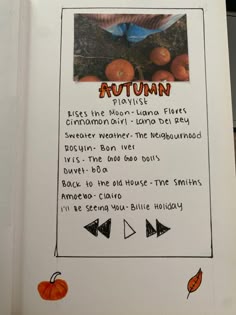 AUTUMN
PlAYLiST
Rises the Moon - Liana Flores
cinnamon girl - Lana Del Rey
Sweater weather - The Neighbourhood
Rosyln - Bon iver
Iris - The Goo Goo Dolls
Duvet - bôa
Back to the old House - The Smiths
Amoeba - Clairo
I'll be Seeing You - Billie Holiday